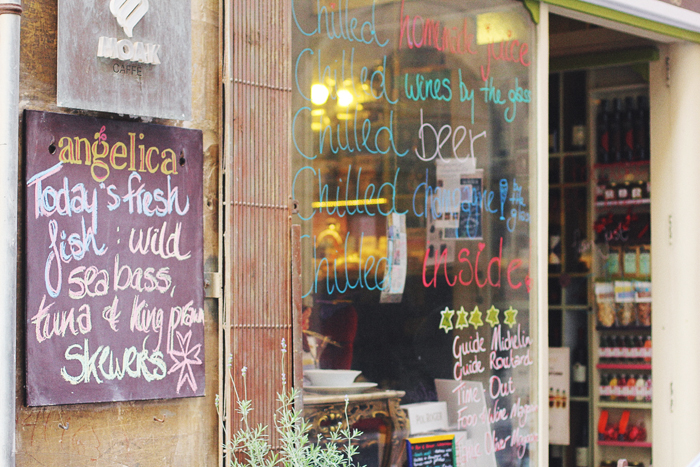 HOAX
CAFFE
angelica
Today's fresh
fish: wild
sea bass,
tuna & King prawn
SKEWERS
Chilled homemade juice
Chilled wines by the glass
Chilled beer
Chilled champagne
Chilled inside
Guide Michelin
Guide Routard
Time-Out
Food & Wine